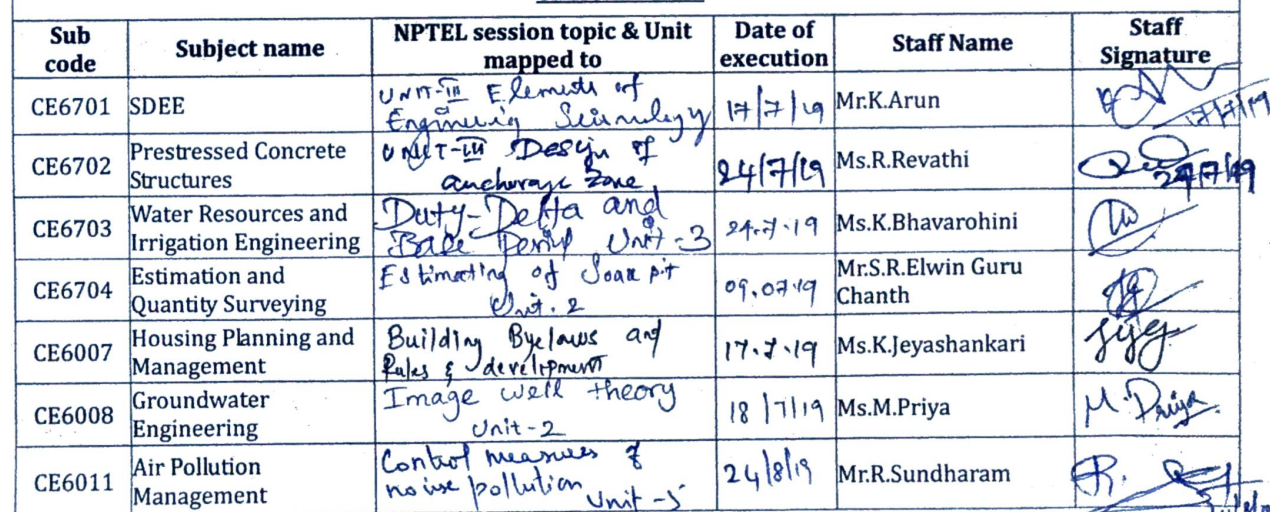 Sub code | Subject name | NPTEL session topic & Unit mapped to | Date of execution | Staff Name | Staff Signature
CE6701 | SDEE | UNIT-III Elements of Engineering Seismology | 17/7/19 | Mr.K.Arun | 17/7/19
CE6702 | Prestressed Concrete Structures | UNIT-III Design of anchorage zone | 24/7/19 | Ms.R.Revathi | 24/7/19
CE6703 | Water Resources and Irrigation Engineering | Duty-Delta and Base Period Unit-3 | 24.7.19 | Ms.K.Bhavarohini
CE6704 | Estimation and Quantity Surveying | Estimating of Soak pit Unit.2 | 09.07.19 | Mr.S.R.Elwin Guru Chanth
CE6007 | Housing Planning and Management | Building Byelaws and Rules & development | 17.7.19 | Ms.K.Jeyashankari
CE6008 | Groundwater Engineering | Image well theory Unit-2 | 18/7/19 | Ms.M.Priya | M.Priya
CE6011 | Air Pollution Management | Control measures of noise pollution Unit-5 | 24/8/19 | Mr.R.Sundharam | R.